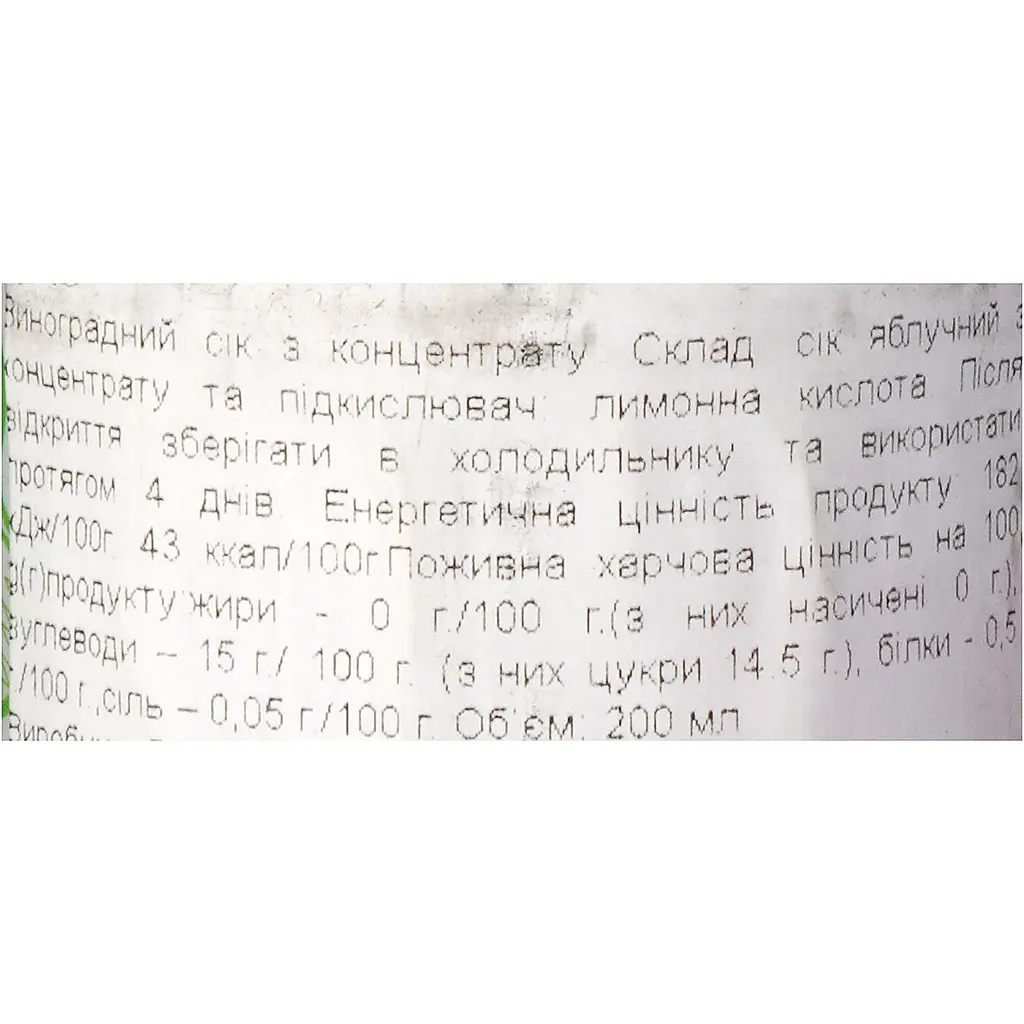 Виноградний сік з концентрату Склад сік яблучний з
концентрату та підкислювач: лимонна кислота. Після
відкриття зберігати в холодильнику та використати
протягом 4 днів. Енергетична цінність продукту 182
кДж/100г. 43 ккал/100г Поживна харчова цінність на 100
g(г)продукту:жири - 0 г./100 г.(з них насичені 0 г.),
вуглеводи – 15 г/ 100 г. (з них цукри 14.5 г.), білки - 0,5
г./100 г.,сіль – 0,05 г/100 г. Об'єм: 200 мл